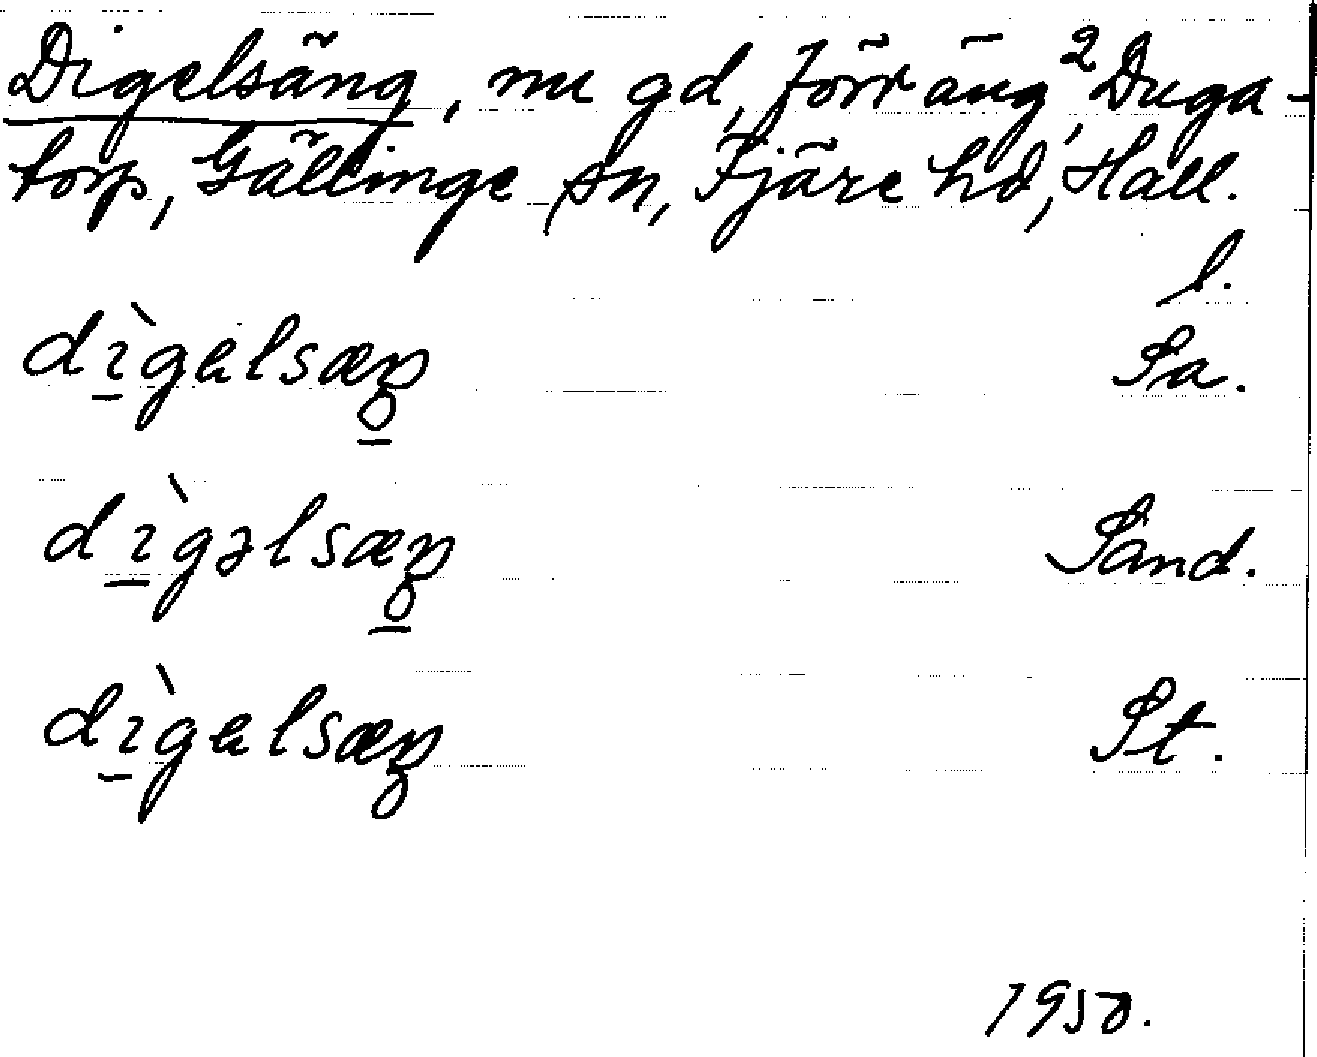 Digelsäng, nu gd, förr äng, ² Duga-
torp, Gällinge sn, Fjäre hd, Hall.
l.
dìgelsæŋ Sa.
dìgəlsæŋ Sand.
dìgelsæŋ St.
1950.